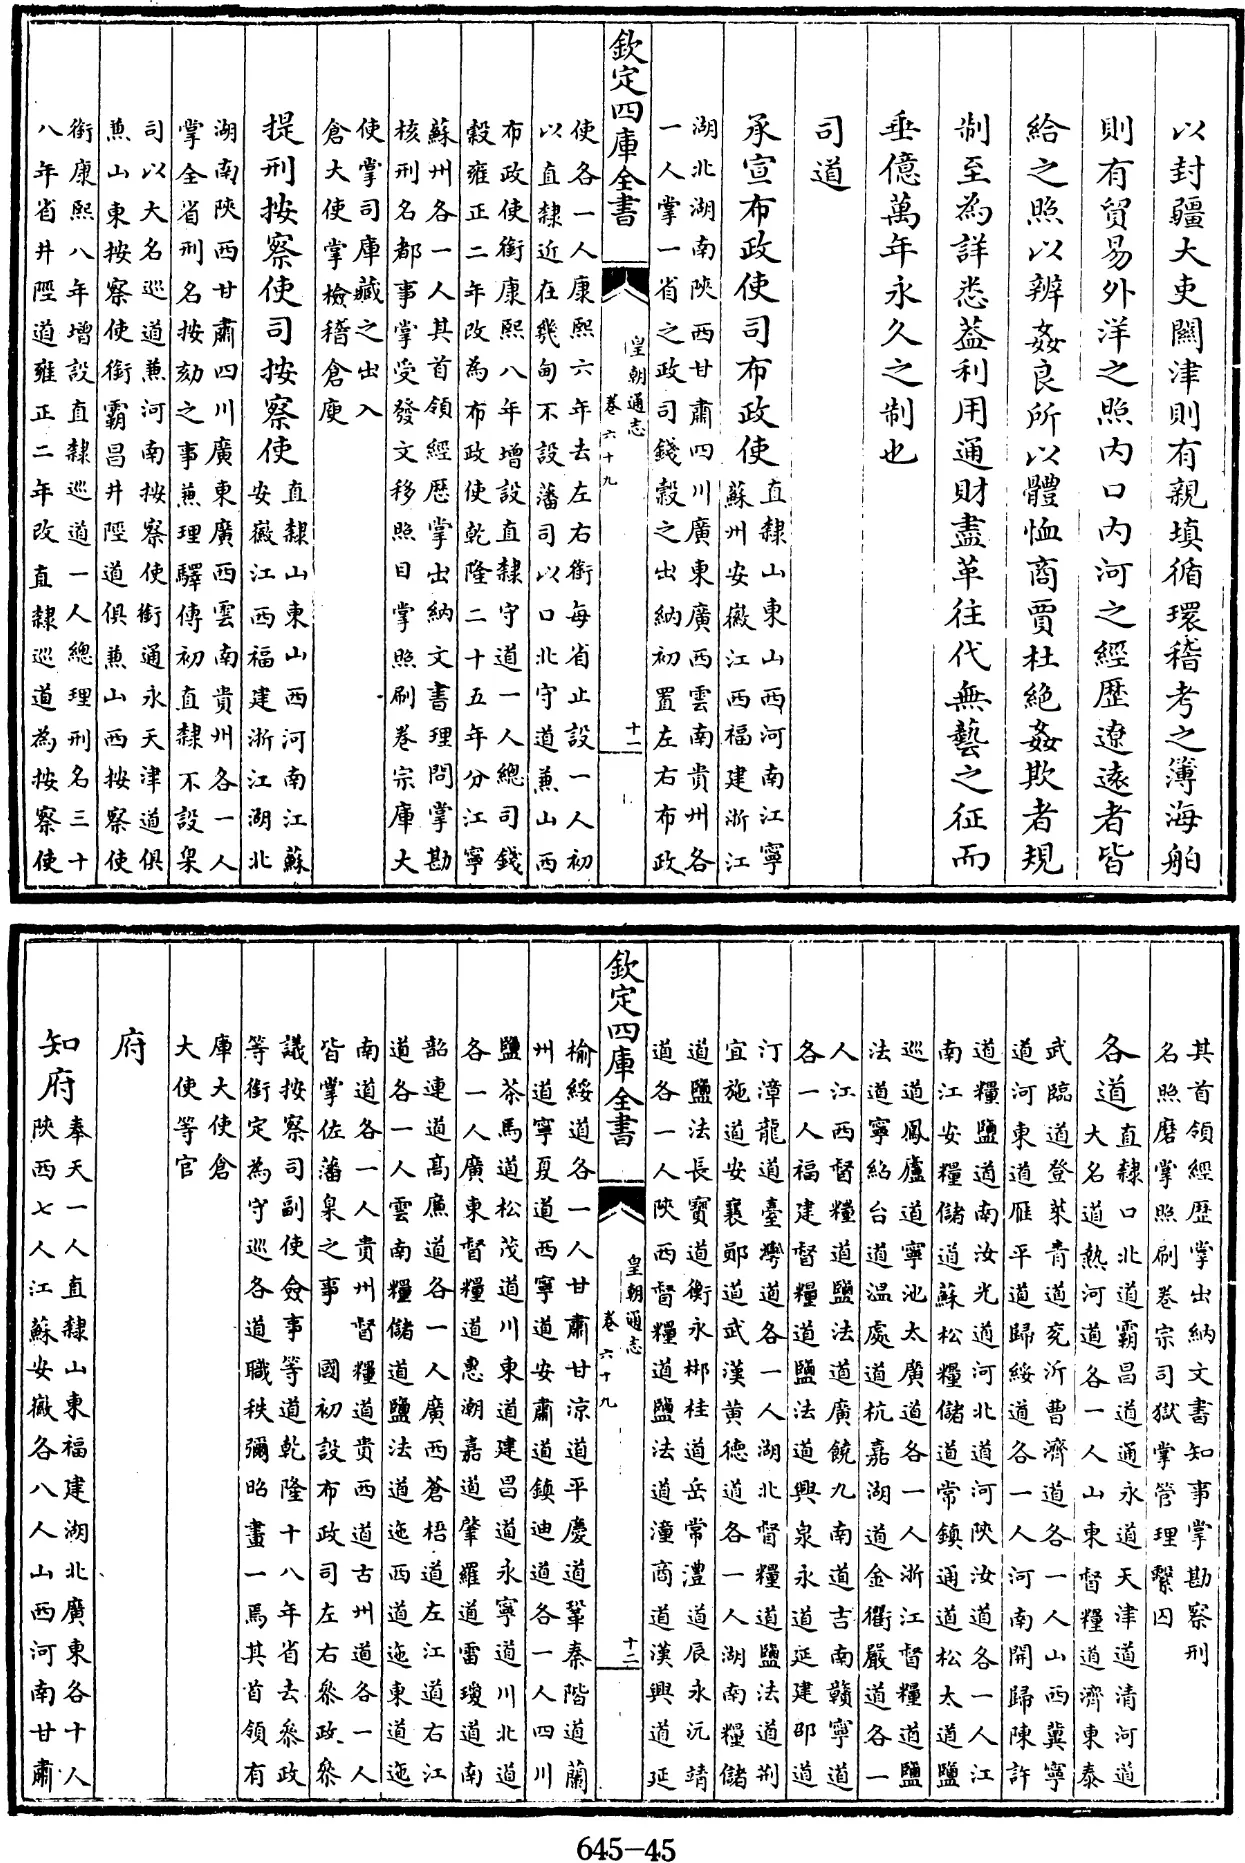 以封疆大吏關津則有親填循環稽考之簿海舶
則有貿易外洋之照内口内河之經歴遼遠者皆
給之照以辨姦良所以體恤商賈杜絶姦欺者規
制至為詳悉葢利用通財盡革往代無藝之征而
垂億萬年永久之制也
司道
承宣布政使司布政使直隸山東山西河南江寧
蘇州安徽江西福建浙江
湖北湖南陜西甘肅四川廣東廣西雲南貴州各
一人掌一省之政司錢穀之出納初置左右布政
欽定四庫全書
皇朝通志
卷六十九
十一
使各一人康熙六年去左右銜每省止設一人初
以直隸近在畿甸不設藩司以口北守道兼山西
布政使銜康熙八年增設直隸守道一人總司錢
穀雍正二年改為布政使乾隆二十五年分江寧
蘇州各一人其首領經歴掌出納文書理問掌勘
核刑名都事掌受發文移照目掌照刷卷宗庫大
使掌司庫藏之出入
倉大使掌檢稽倉庾
提刑按察使司按察使直隸山東山西河南江蘇
安徽江西福建浙江湖北
湖南陜西甘肅四川廣東廣西雲南貴州各一人
掌全省刑名按劾之事兼理驛傳初直隸不設臬
司以大名巡道兼河南按察使銜通永天津道俱
兼山東按察使銜霸昌井陘道俱兼山西按察使
銜康熙八年增設直隸巡道一人總理刑名三十
八年省井陘道雍正二年改直隸巡道為按察使
其首領經歴掌出納文書知事掌勘察刑
名照磨掌照刷卷宗司獄掌管理繫囚
各道直隸口北道霸昌道通永道天津道清河道
大名道熱河道各一人山東督糧道濟東泰
武臨道登萊青道兖沂曹濟道各一人山西冀寧
道河東道雁平道歸綏道各一人河南開歸陳許
道糧鹽道南汝光道河北道河陜汝道各一人江
南江安糧儲道蘇松糧儲道常鎮通道松太道鹽
巡道鳳廬道寧池太廣道各一人浙江督糧道鹽
法道寧紹台道温處道杭嘉湖道金衢嚴道各一
人江西督糧道鹽法道廣饒九南道吉南贛寧道
各一人福建督糧道鹽法道興泉永道延建邵道
汀漳龍道臺灣道各一人湖北督糧道鹽法道荆
宜施道安襄鄖道武漢黄德道各一人湖南糧儲
道鹽法長寶道衡永郴桂道岳常澧道辰永沅靖
道各一人陜西督糧道鹽法道潼商道漢興道延
欽定四庫全書
皇朝通志
卷六十九
十二
榆綏道各一人甘肅甘涼道平慶道鞏秦階道蘭
州道寧夏道西寧道安肅道鎮迪道各一人四川
鹽茶馬道松茂道川東道建昌道永寧道川北道
各一人廣東督糧道惠潮嘉道肇羅道雷瓊道南
韶連道高廉道各一人廣西蒼梧道左江道右江
道各一人雲南糧儲道鹽法道迤西道迤東道迤
南道各一人貴州督糧道貴西道古州道各一人
皆掌佐藩臬之事 國初設布政司左右叅政叅
議按察司副使僉事等道乾隆十八年省去叅政
等銜定為守巡各道職秩彌昭畫一焉其首領有
庫大使倉
大使等官
府
知府奉天一人直隸山東福建湖北廣東各十人
陜西七人江蘇安徽各八人山西河南甘肅
645-45